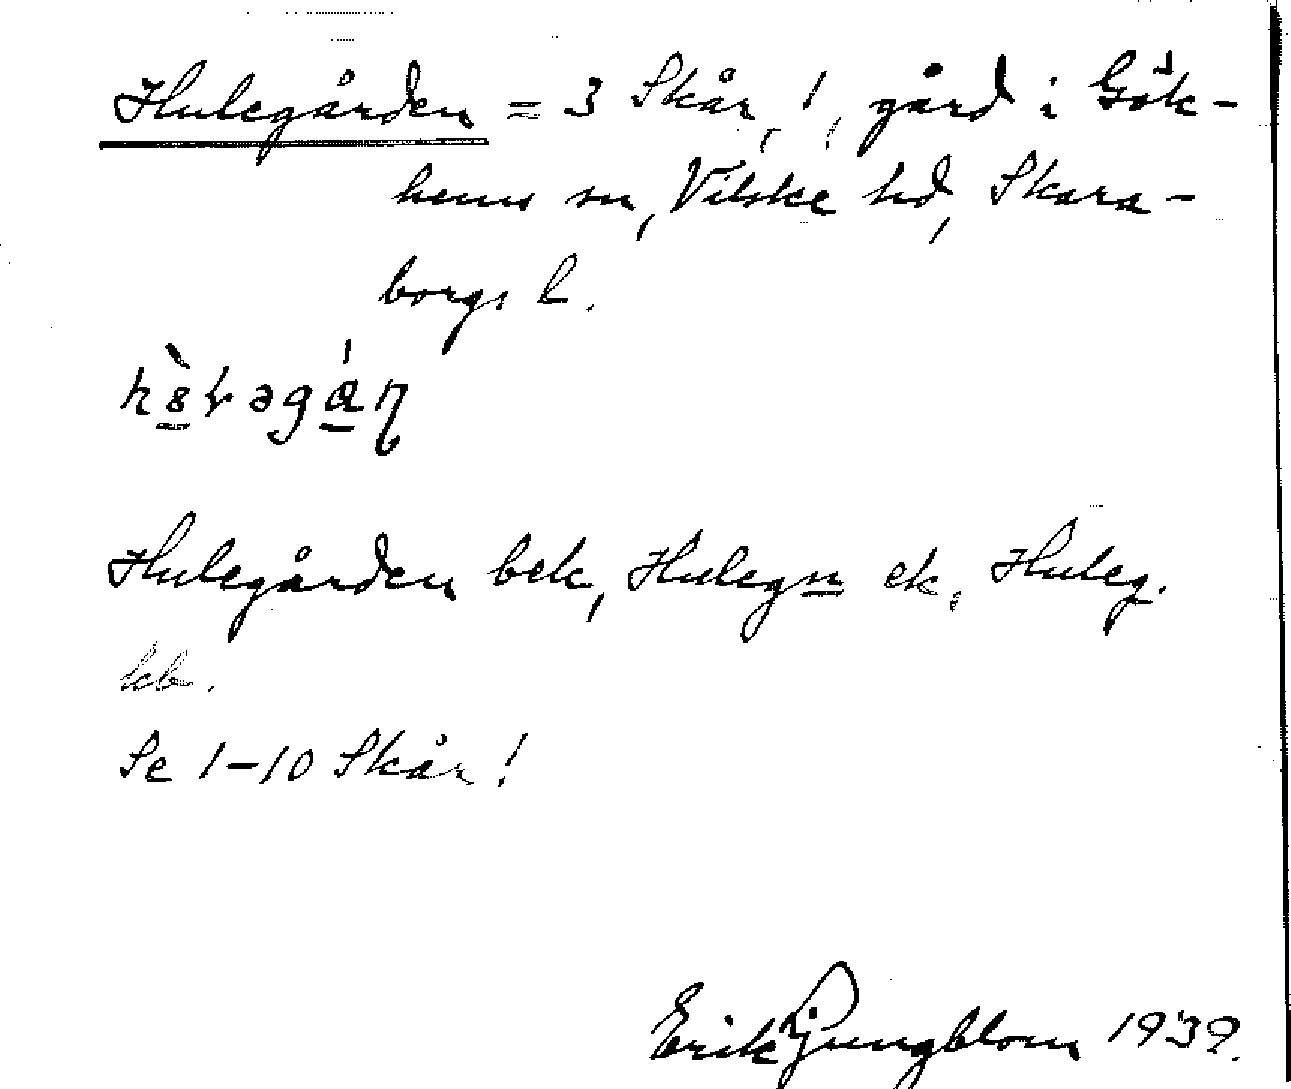 Hulegården = 3 Skår, !, gård i Gök-
hems sn, Vilske hd, Skara-
borgs l.
Hulegården bek, Hulegn ek, Huleg.
kb.
Se 1-10 Skår!
Erik Ljungblom 1939.